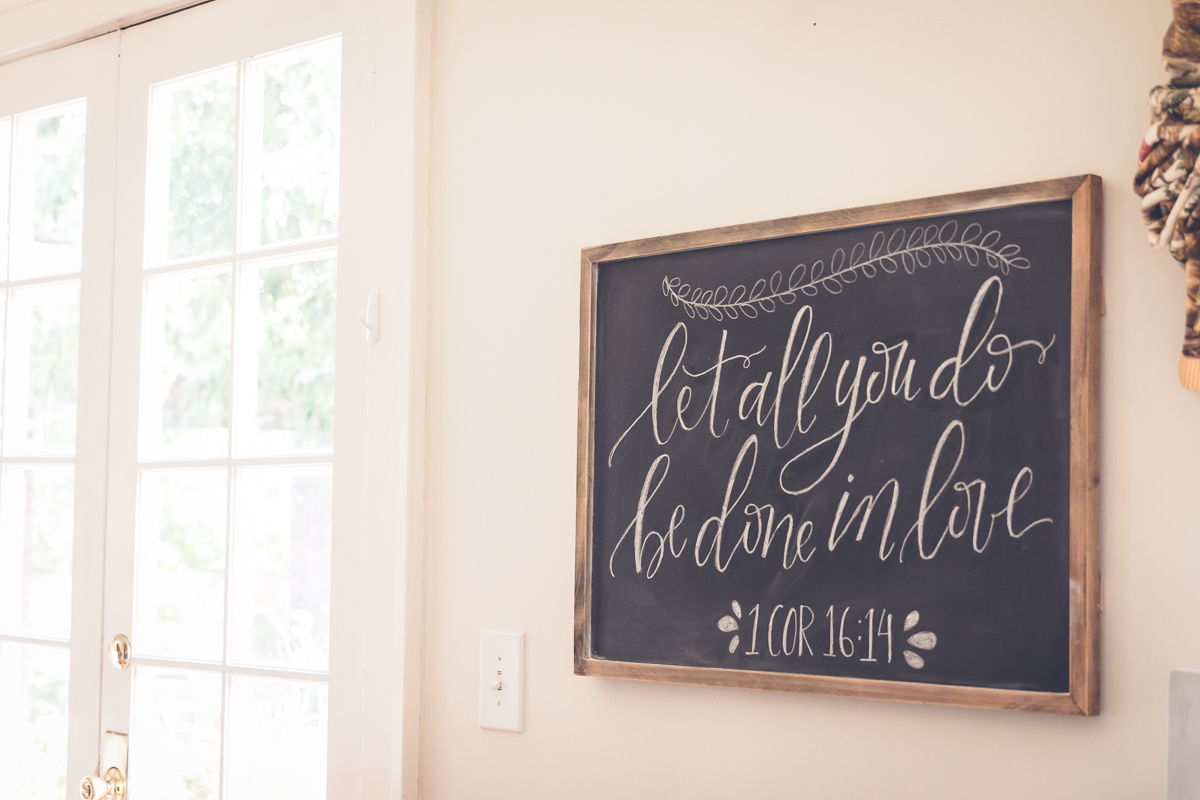 let all you do
be done in love
1 COR 16:14